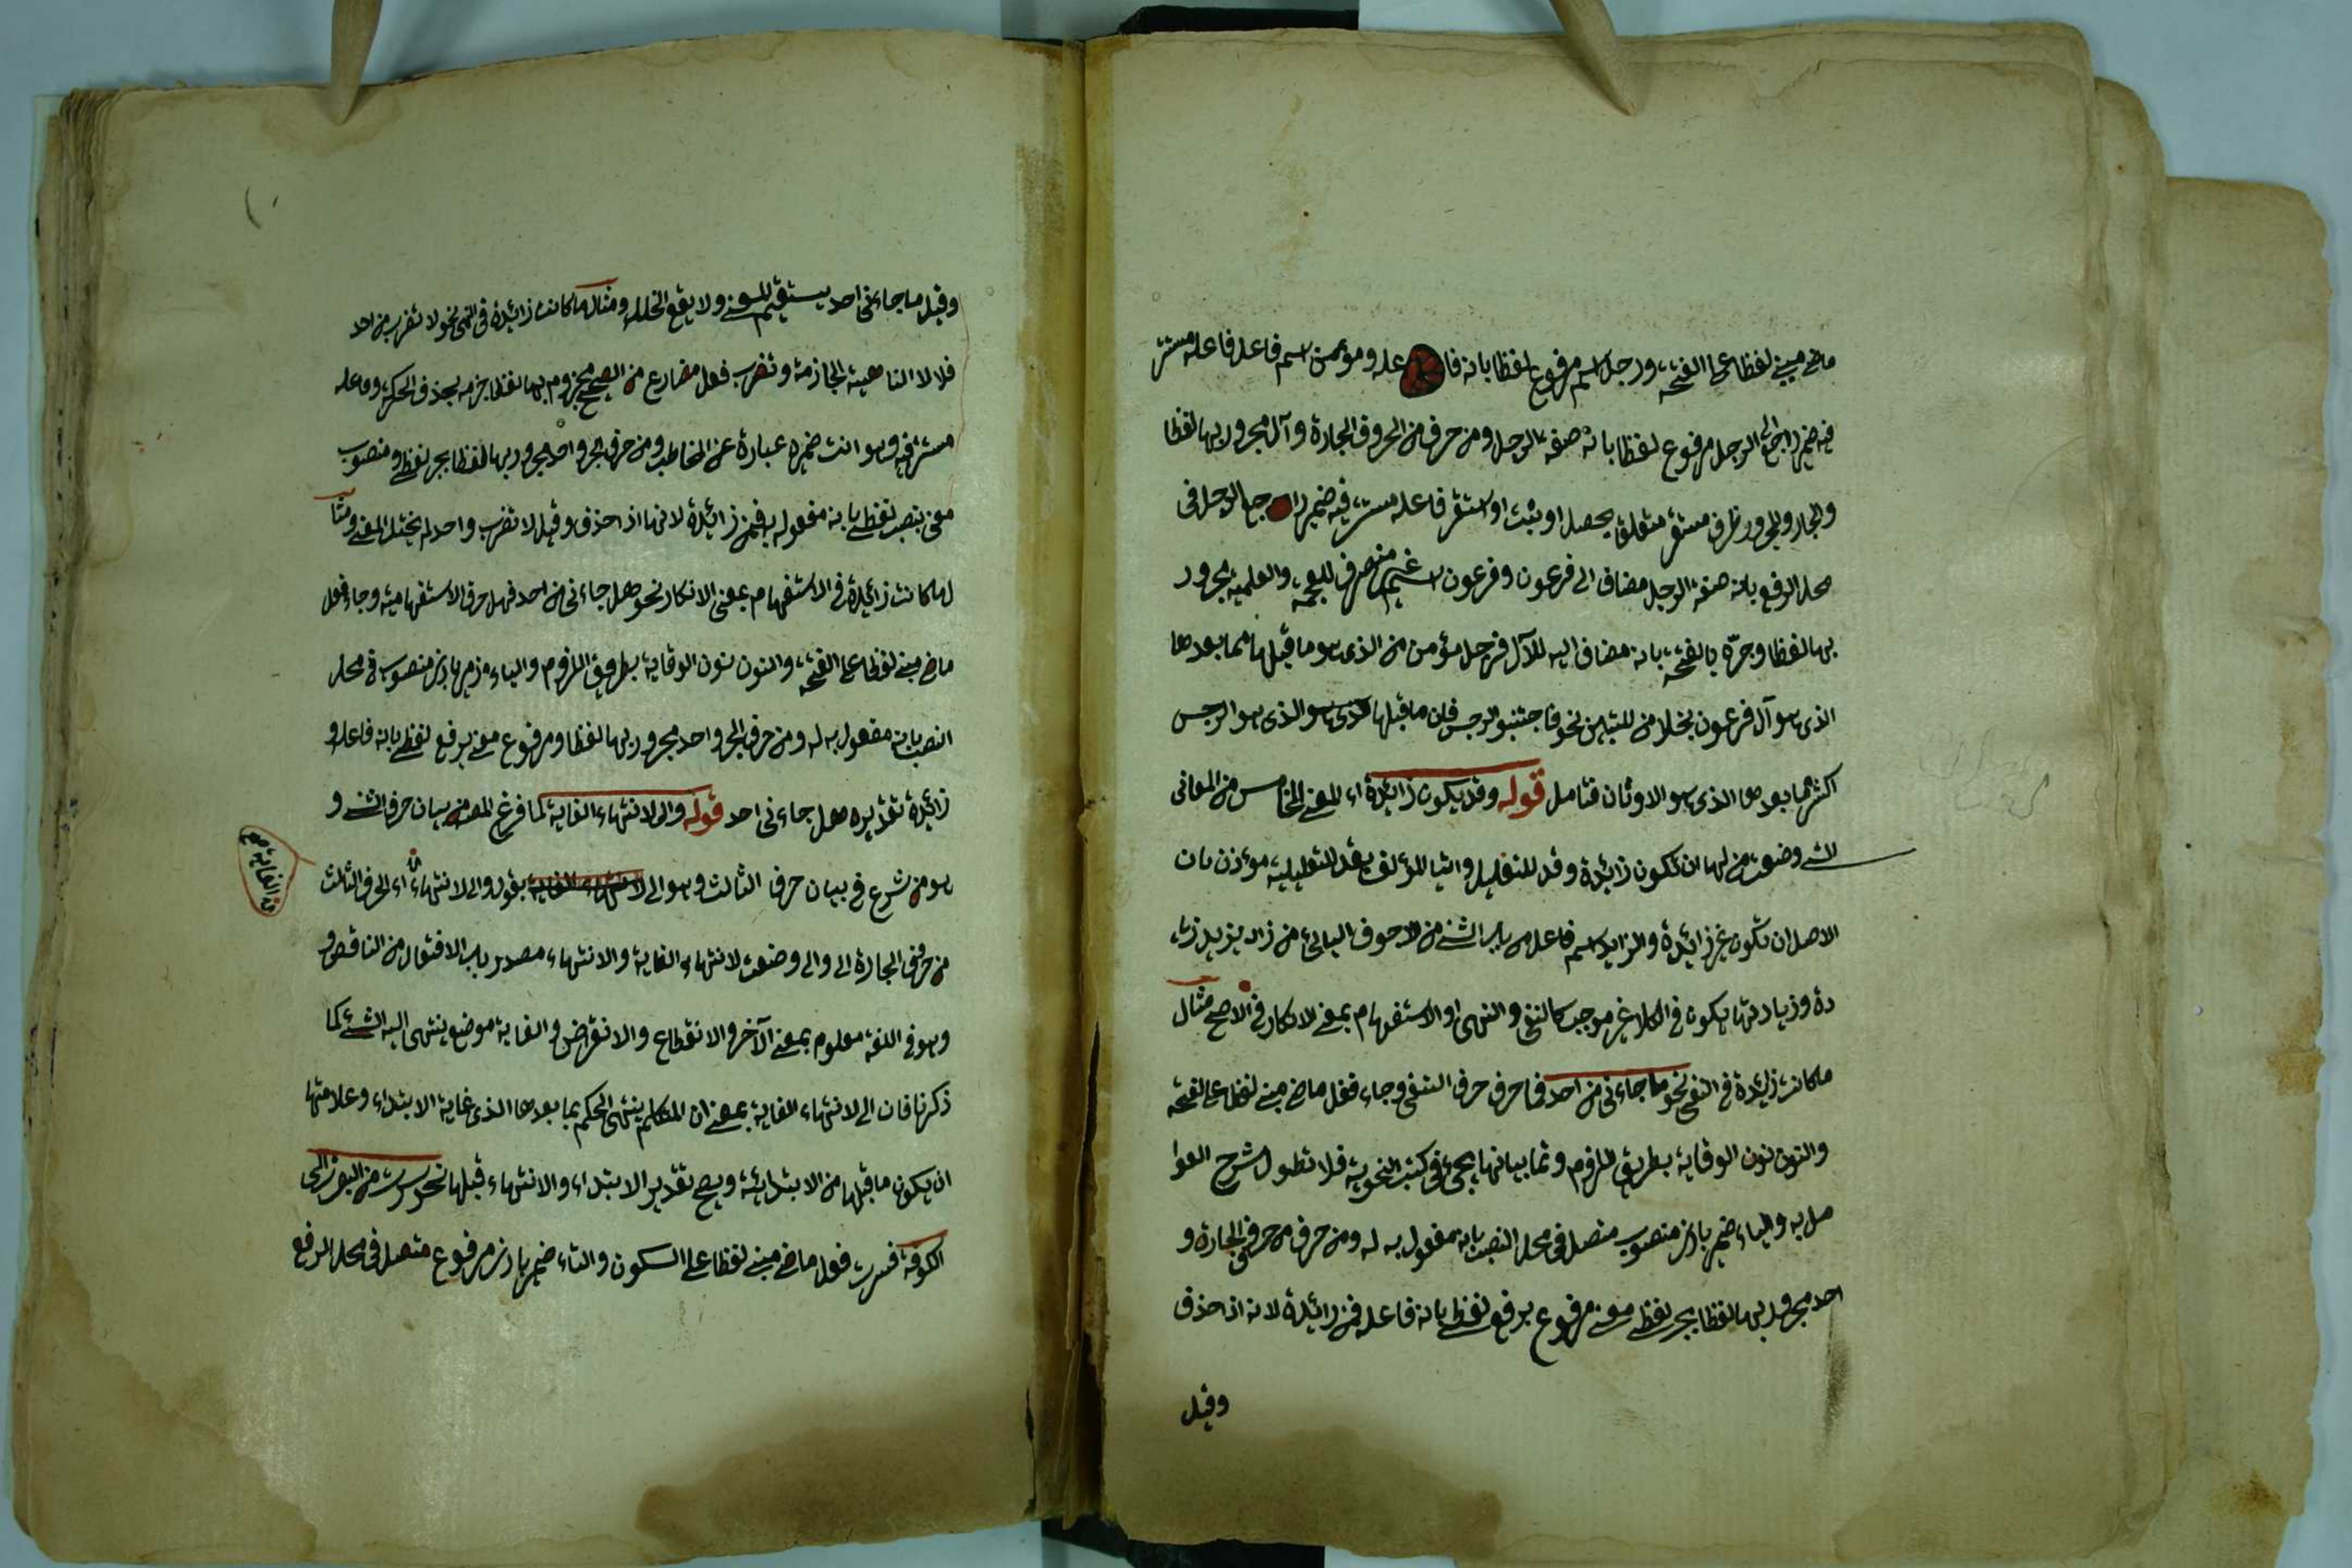 ماضى مبنى لفظا على الفتحة ورجل اسم مرفوع لفظا بانه فاعله ومؤمن اسم فاعل فاعله مستتر
فيه ضمير راجع الى الرجل مرفوع لفظا بانه صفة الرجل ومن حرف من الحروف الجارة وآل مجرور بها لفظا
والجار والمجرور ظرف مستقر متعلق بحصل او يثبت او استقر فاعله مستتر فيه ضمير راجع الى الرجل فى
محل الرفع بانه صفة الرجل مضاف الى فرعون وفرعون اسم غير منصرف للعجمة والعلمية مجرور
بها لفظا وجره بالفتحة بانه مضاف اليه للآل فرجل مؤمن من الذى هو ما قبلها مما بعدها
الذى هو آل فرعون بخلاف من للتبيين نحو فاجتنبوا الرجس فان ما قبلها الذى هو الرجس
اكثر مما بعدها الذى هو الاوثان فتامل قوله وقد يكون زائدة اى المعنى الخامس من المعانى
التى وضعت من لها ان تكون زائدة وقد للتقليل واتيا المؤلف بقد للتقليلية مؤذن بان
الاصل ان تكون غير زائدة والزايد اسم فاعل من باب الثانى من الاجوف اليائى من زاد يزيد زيا
دة وزيادتها يكون فى الكلام غير موجب كالنفى والنهى او الاستفهام بمعنى الانكار فى الاصح مثال
ما كانت زائدة فى النفى نحو ما جاءنى من احد فما حرف حرف النفى وجاء فعل ماضى مبنى لفظا على الفتحة
والنون نون الوقاية بطريق اللزوم وتما بيانها يجئ فى كتب النحوية فلا تطول شرح العوا
مل به والياء ضمير بارز منصوب متصل فى محل النصب بانه مفعول به له ومن حرف من حروف الجارة و
احد مجرور بها لفظا بجر لفظى معنى مرفوع برفع لفظى بانه فاعله فمن زائدة لانه اذا حذف
وقيل
وقيل ما جاءنى احد يستقيم المعنى ولا يقع الخلل ومثال ما كانت زائدة فى النهى نحو لا تضرب من احد
فلا لا الناهية الجازمة وتضرب فعل مضارع من الصحيح مجزوم بها لفظا جزمه بحذف الحركة وفاعله
مستتر فيه وهو انت ضميره عبارة عن المخاطب ومن حرف الجر واحد مجرور بها لفظا بجر لفظى ومنصوب
معنى بنصب لفظى بانه مفعول به فمن زائدة لانها اذا حذف وقيل لا تضرب واحد لم يختل المعنى ومثا
لما كانت زائدة فى الاستفهام بمعنى الانكار نحو هل جاءنى من احد فهل حرف الاستفهامية وجاء فعل
ماضى مبنى لفظا على الفتحة والنون نون الوقاية بطريق اللزوم والياء ضمير بارز منصوب فى محل
النصب بانه مفعول به له ومن حرف الجر واحد مجرور بها لفظا ومرفوع معنى برفع لفظى بانه فاعله و
زائدة تقديره هل جاءنى احد قوله والى لانتهاء الغاية لما فرغ المصنف من بيان حرف الثانى و
هو من شرع فى بيان حرف الثالث وهو الى لانتهاء الغاية بقوله والى لانتهاء اى الحرف الثالث
من حروف الجارة الى والى وضعت لانتهاء الغاية والانتهاء مصدر باب الافتعال من الناقص و
وهو فى اللغة معلوم بمعنى الآخر والانقطاع والانقراض والغاية موضع ينتهى اليه الشئ كما
ذكرنا فان الى لانتهاء الغاية بمعنى ان المتكلم ينتهى الحكم بما بعدها الذى غاية الابتداء وعلامتها
ان يكون ما قبلها من الابتدائية ويصح تقدير الابتداء والانتهاء قبلها نحو سرت من البصرة الى
الكوفة فسرت فعل ماضى مبنى لفظا على السكون والتاء ضمير بارز مرفوع متصل فى محل الرفع